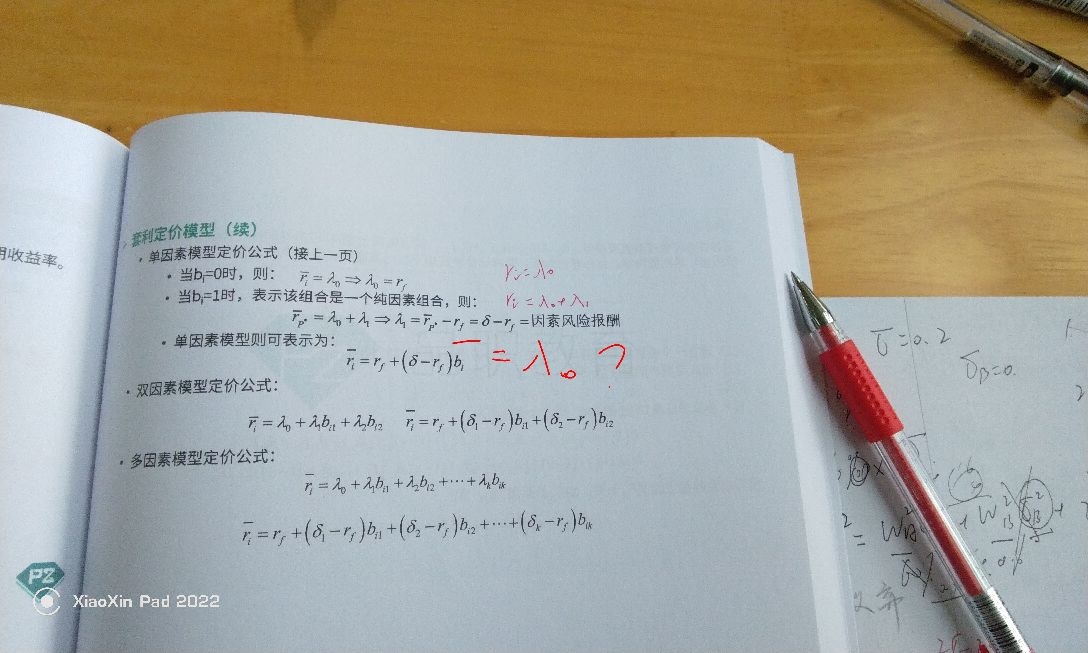 用收益率。
套利定价模型（续）
• 单因素模型定价公式（接上一页）
• 当bᵢ=0时，则： r̄ᵢ = λ₀ ⇒ λ₀ = r_f rᵢ = λ₀
• 当bᵢ=1时，表示该组合是一个纯因素组合，则： rᵢ = λ₀ + λ₁
r̄_p* = λ₀ + λ₁ ⇒ λ₁ = r̄_p* − r_f = δ − r_f = 因素风险报酬
• 单因素模型则可表示为：
r̄ᵢ = r_f + (δ − r_f)bᵢ = λ₀ ?
• 双因素模型定价公式：
r̄ᵢ = λ₀ + λ₁bᵢ₁ + λ₂bᵢ₂ r̄ᵢ = r_f + (δ₁ − r_f)bᵢ₁ + (δ₂ − r_f)bᵢ₂
• 多因素模型定价公式：
r̄ᵢ = λ₀ + λ₁bᵢ₁ + λ₂bᵢ₂ + ⋯ + λₖbᵢₖ
r̄ᵢ = r_f + (δ₁ − r_f)bᵢ₁ + (δ₂ − r_f)bᵢ₂ + ⋯ + (δₖ − r_f)bᵢₖ
PZ
XiaoXin Pad 2022
= 0.2